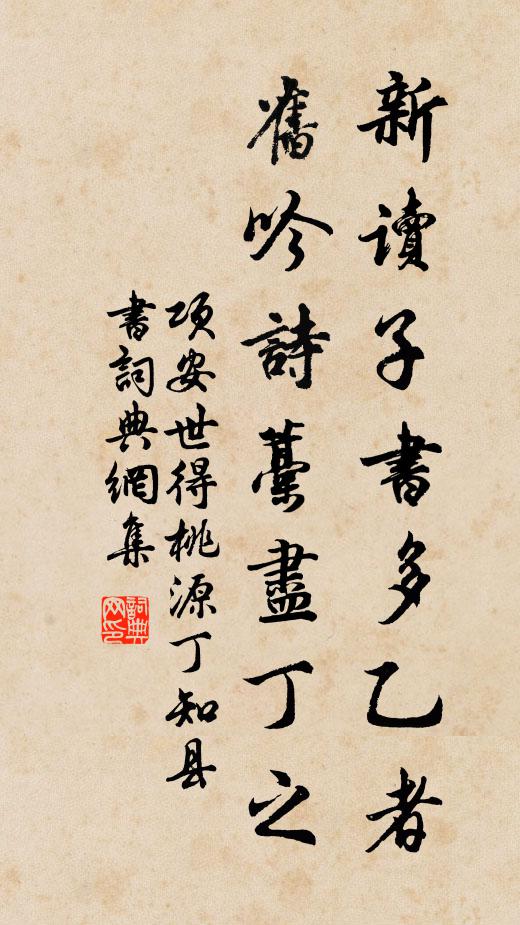 新讀子書多乙者
舊吟詩藁盡丁之
項安世得桃源丁知县
書詞典網集
詞典网印